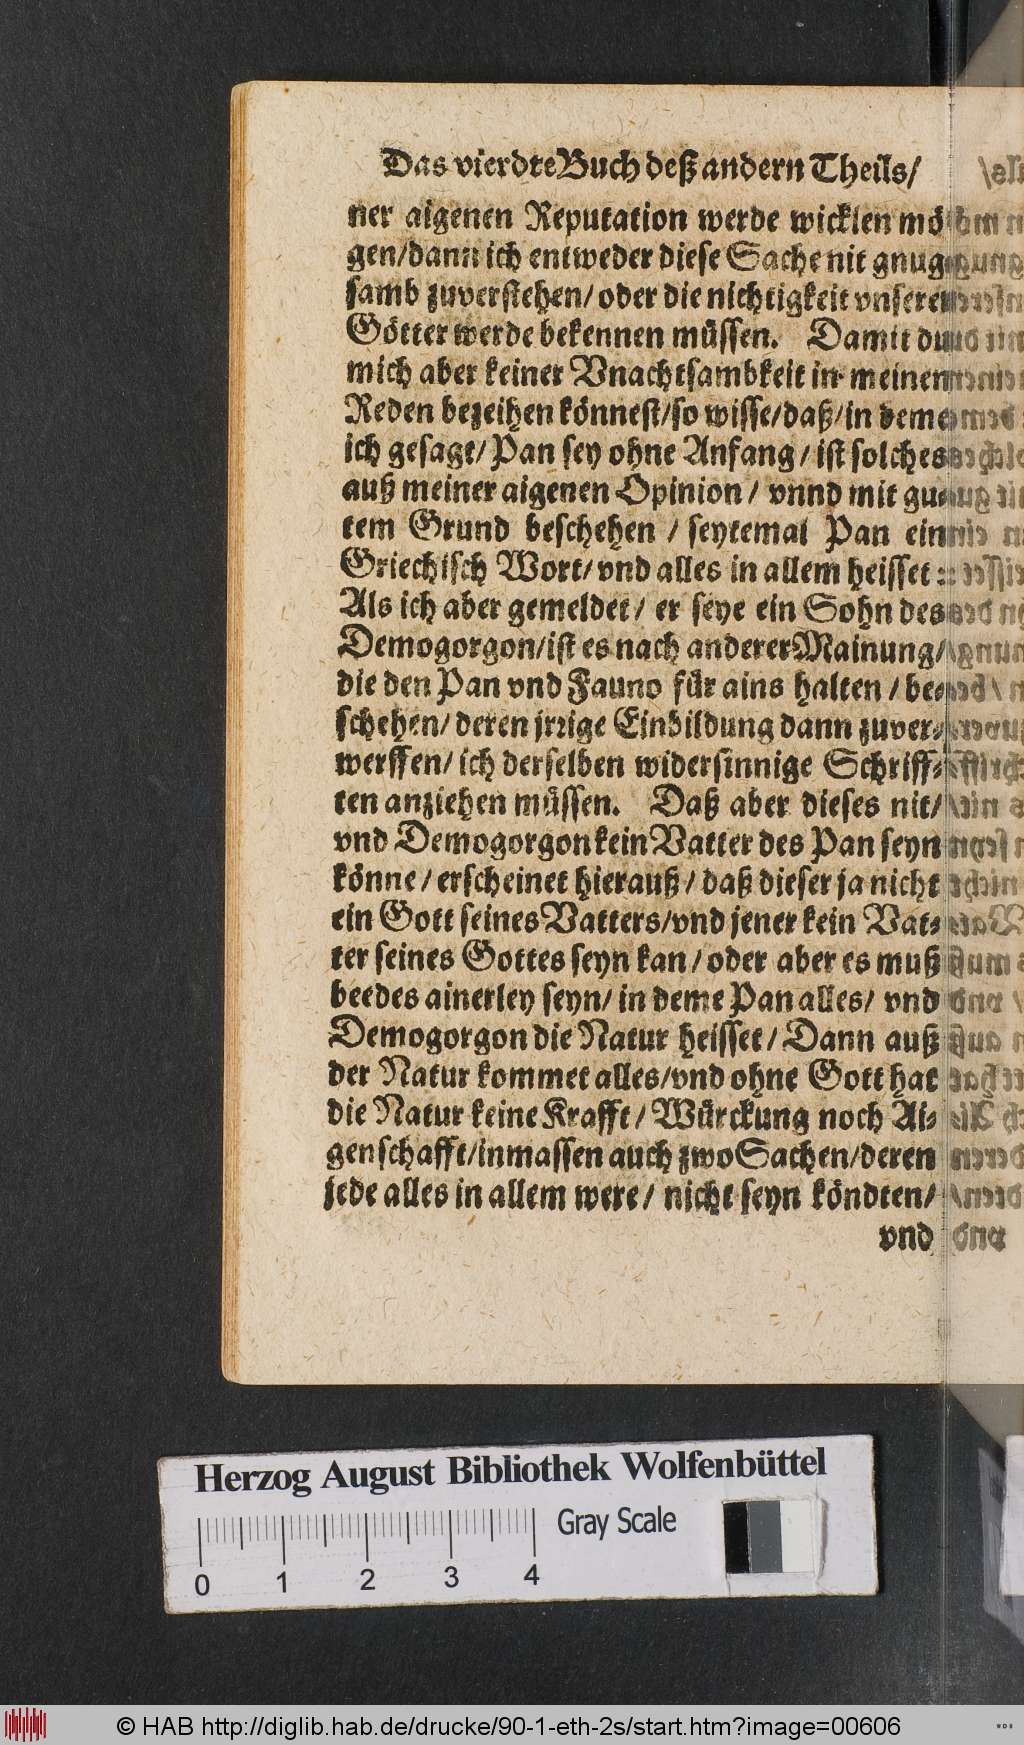 Das vierdte Buch deß andern Theils/
ner aigenen Reputation werde wicklen mö
gen/dann ich entweder diese Sache nit gnug
samb zuverstehen/ oder die nichtigkeit vnserer
Götter werde bekennen müssen. Damit du
mich aber keiner Vnachtsambkeit in meinen
Reden bezeihen könnest/so wisse/daß/in deme
ich gesagt/ Pan sey ohne Anfang/ ist solches
auß meiner aigenen Opinion/ vnnd mit gu
tem Grund beschehen / seytemal Pan ein
Griechisch Wort/ vnd alles in allem heisset:
Als ich aber gemeldet/ er seye ein Sohn des
Demogorgon/ist es nach anderer Mainung/
die den Pan vnd Fauno für ains halten / be-
schehen/ deren jrrige Einbildung dann zuver-
werffen/ ich derselben widersinnige Schriff-
ten anziehen müssen. Daß aber dieses nit/
vnd Demogorgon kein Vatter des Pan seyn
könne/ erscheinet hierauß/ daß dieser ja nicht
ein Gott seines Vatters/vnd jener kein Vat-
ter seines Gottes seyn kan/ oder aber es muß
beedes ainerley seyn/ in deme Pan alles/ vnd
Demogorgon die Natur heisset/ Dann auß
der Natur kommet alles/vnd ohne Gott hat
die Natur keine Krafft/ Würckung noch Ai-
genschafft/inmassen auch zwo Sachen/deren
jede alles in allem were/ nicht seyn köndten/
vnd
Herzog August Bibliothek Wolfenbüttel
Gray Scale
0 1 2 3 4
© HAB http://diglib.hab.de/drucke/90-1-eth-2s/start.htm?image=00606